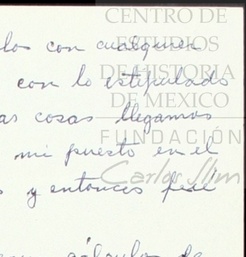 CENTRO DE
ESTUDIOS
DE HISTORIA
DE MEXICO
FUNDACIÓN
Carlos Slim
los con cualquier
con lo estipulado
as cosas llegamos
mi puesto en el
y entonces fue
cálculo de